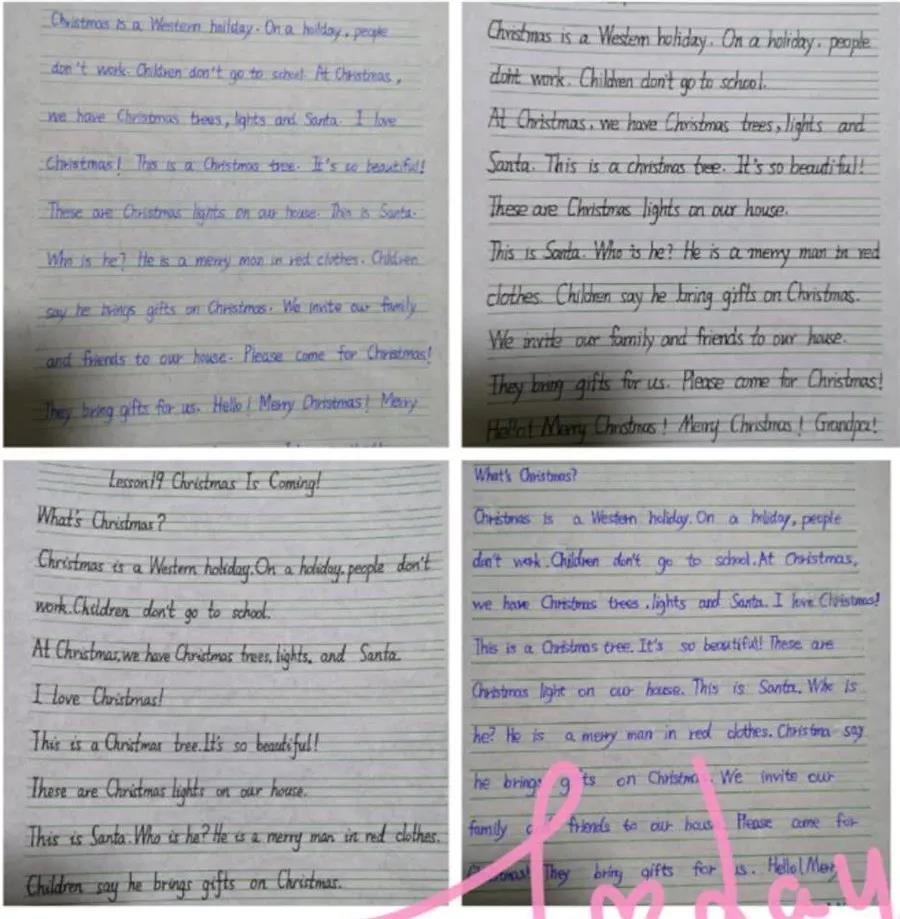 Christmas is a Western hoilday. On a hoilday, people
don't work. Children don't go to school. At Christmas,
we have Christmas trees, lights and Santa. I love
Christmas! This is a Christmas tree. It's so beautiful!
These are Christmas lights on our house. This is Santa.
Who is he? He is a merry man in red clothes. Children
say he brings gifts on Christmas. We invite our family
and friends to our house. Please come for Christmas!
They bring gifts for us. Hello! Merry Christmas! Merry
Christmas is a Western holiday. On a holiday, people
don't work. Children don't go to school.
At Christmas, we have Christmas trees, lights and
Santa. This is a christmas tree. It's so beautiful!
These are Christmas lights on our house.
This is Santa. Who is he? He is a merry man in red
clothes. Children say he bring gifts on Christmas.
We invite our family and friends to our house.
They bring gifts for us. Please come for Christmas!
Hello! Merry Christmas! Merry Christmas! Grandpa!
Lesson19 Christmas Is Coming!
What's Christmas?
Christmas is a Western holiday. On a holiday, people don't
work. Children don't go to school.
At Christmas, we have Christmas trees, lights, and Santa.
I love Christmas!
This is a Christmas tree. It's so beautiful!
These are Christmas lights on our house.
This is Santa. Who is he? He is a merry man in red clothes.
Children say he brings gifts on Christmas.
What's Christmas?
Christmas is a Western holiday. On a holiday, people
don't work. Children don't go to school. At Christmas,
we have Christmas trees, lights and Santa. I love Christmas!
This is a Christmas tree. It's so beautiful! These are
Christmas light on our house. This is Santa. Who is
he? He is a merry man in red clothes. Christma say
he brings gifts on Christmas. We invite our
family friends to our house. Please come for
They bring gifts for us. Hello! Merry
today